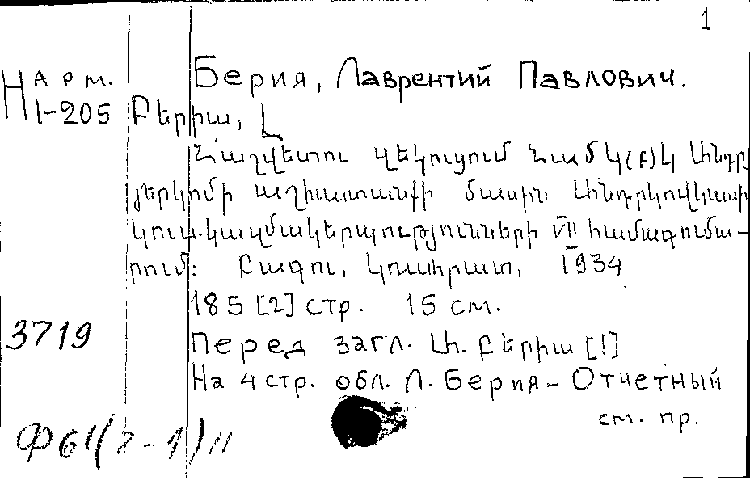 1
Нарм. Берия, Лаврентий Павлович.
1-205 Բերիա, Լ
Հաշվետու զեկուցում ՀամԿ(բ)Կ Անդր
յերկոմի աշխատանքի մասին Անդրկովկասի
կուս.կազմակերպությունների VII համագումա-
րում: Բագու, Կուսհրատ, 1934
185 [2] стр. 15 см.
3719 Перед загл. Լ. Բերիա [!]
На 4 стр. обл. Л. Берия - Отчетный
см. пр.
Ф61(2-1)11